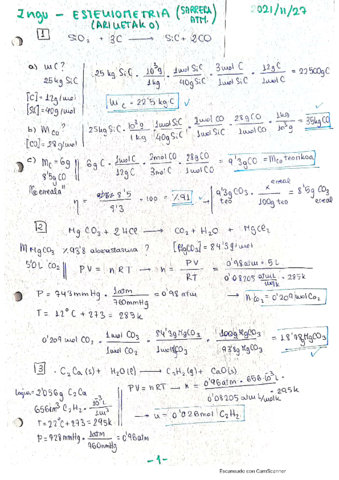 Ingu - ESTEKIOMETRIA (SARRERA ATM.) 2021/11/27
(ARIKETAK)
1 SiO2 + 3C → SiC + 2CO
a) mC?
25 kg SiC
[C] = 12g/mol
[SiC] = 40g/mol
25 kg SiC · 10³g/1kg · 1mol SiC/40g SiC · 3mol C/1mol SiC · 12g C/1mol C = 22500g C
mC = 22'5 kg C
b) mCO?
[CO] = 28g/mol
25kg SiC · 10³g/1kg · 1mol SiC/40g SiC · 2mol CO/1mol SiC · 28g CO/1mol CO · 1kg/10³g = 35kg CO
c) mC = 6g
8'5g CO
% erreala"
6g C · 1mol C/12g C · 2mol CO/3mol C · 28g CO/1mol CO = 9'3g CO = mCO teorikoa
η = 8'5/9'3 · 100 = %91
9'3g CO teo · x erreal/100g teo = 8'5g CO erreal
2 MgCO3 + 2HCl → CO2 + H2O + MgCl2
m MgCO3 %93'8 aberastasuna? [MgCO3] = 84'3g/mol
5'0L CO2
PV = nRT → n = PV/RT = 0'98atm · 5L / 0'08205 atm·L/mol·K · 285k
P = 743mmHg · 1atm/760mmHg = 0'98atm
→ nCO2 = 0'209 mol CO2
T = 12°C + 273 = 285k
0'209 mol CO2 · 1mol CO3/1mol CO2 · 84'3g MgCO3/1mol MgCO3 · 100g MgCO3/93'8g MgCO3 = 18'78g MgCO3
3 · C2Ca(s) + H2O(l) → C2H2(g) + CaO(s)
2'056g C2Ca
656cm³ C2H2 · 10⁻³L/1cm³
T = 22°C + 273 = 295k
P = 728mmHg · 1atm/760mmHg = 0'96atm
PV = nRT → n = 0'96atm · 656·10⁻³L / 0'08205 atm·L/mol·K · 295k
→ n = 0'026mol C2H2
- 1 -
Escaneado con CamScanner